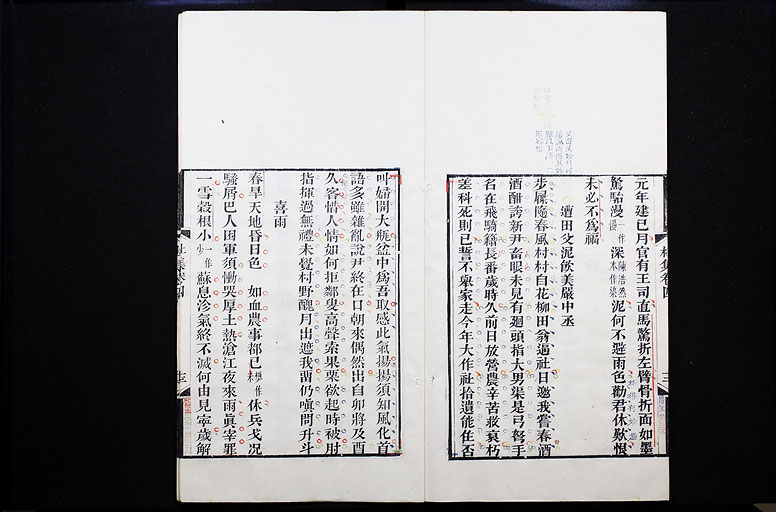 元年建巳月官有王司直馬驚折左臂骨折面如墨
駑駘漫一作慢深陳浩然本作染泥何不避雨色勸君休歎恨
未必不為福
遭田父泥飲美嚴中丞
步屧隨春風村村自花柳田翁逼社日邀我嘗春酒
酒酣誇新尹畜眼未見有迴頭指大男渠是弓弩手
名在飛騎籍長番歲時久前日放營農辛苦救衰朽
差科死則已誓不舉家走今年大作社拾遺能住否
叫婦開大瓶盆中為吾取感此氣揚揚須知風化首
語多雖雜亂說尹終在口朝來偶然出自卯將及酉
久客惜人情如何拒鄰叟高聲索果栗欲起時被肘
指揮過無禮未覺村野醜月出遮我留仍嗔問升斗
喜雨
春旱天地昏日色赤如血農事都已一作未休兵戈況
騷屑巴人困軍須慟哭厚土熱滄江夜來雨真宰罪
一雪穀根小一作少蘇息沴氣終不滅何由見寧歲解
杜集卷四
十三